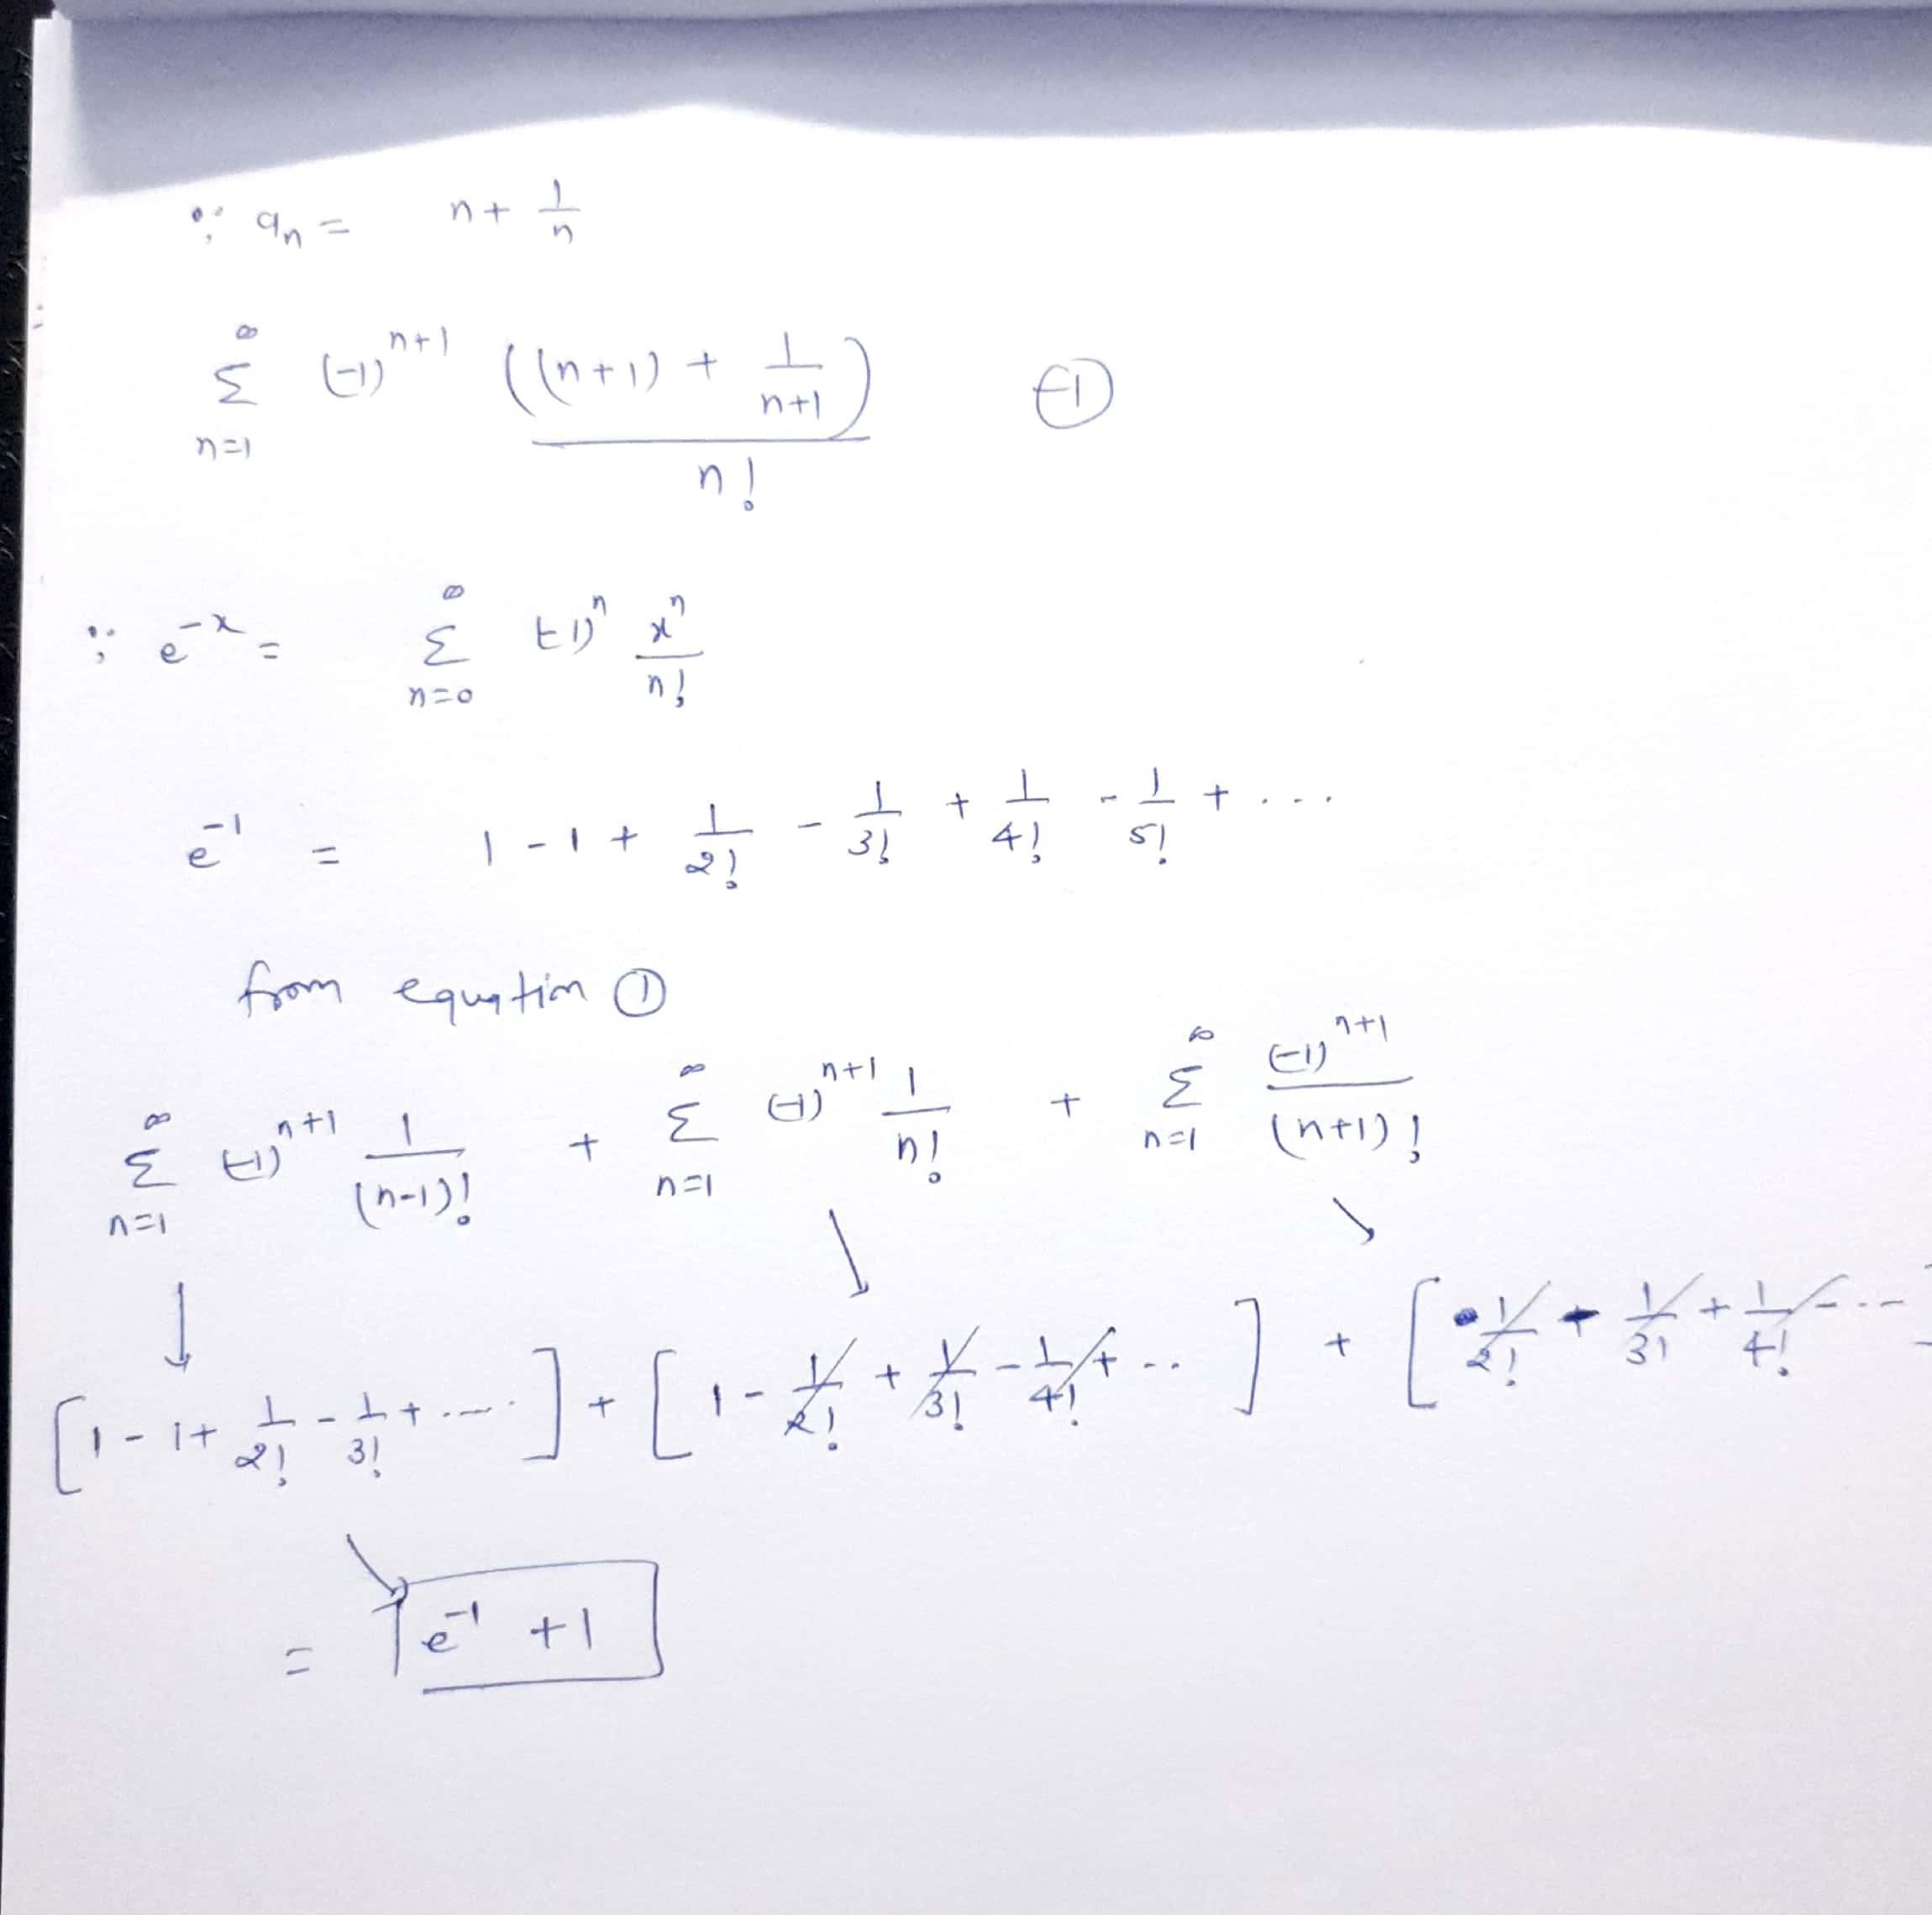 ∵ aₙ = n + 1/n
∞ Σ n=1 (-1)ⁿ⁺¹ ((n+1) + 1/(n+1)) / n! ①
∵ e⁻ˣ = ∞ Σ n=0 (-1)ⁿ xⁿ/n!
e⁻¹ = 1 - 1 + 1/2! - 1/3! + 1/4! - 1/5! + ...
from equation ①
∞ Σ n=1 (-1)ⁿ⁺¹ 1/(n-1)! + ∞ Σ n=1 (-1)ⁿ⁺¹ 1/n! + ∞ Σ n=1 (-1)ⁿ⁺¹/(n+1)!
[1 - 1 + 1/2! - 1/3! + ....] + [1 - 1/2! + 1/3! - 1/4! + ..] + [1/2! - 1/3! + 1/4! - ...
= e⁻¹ + 1